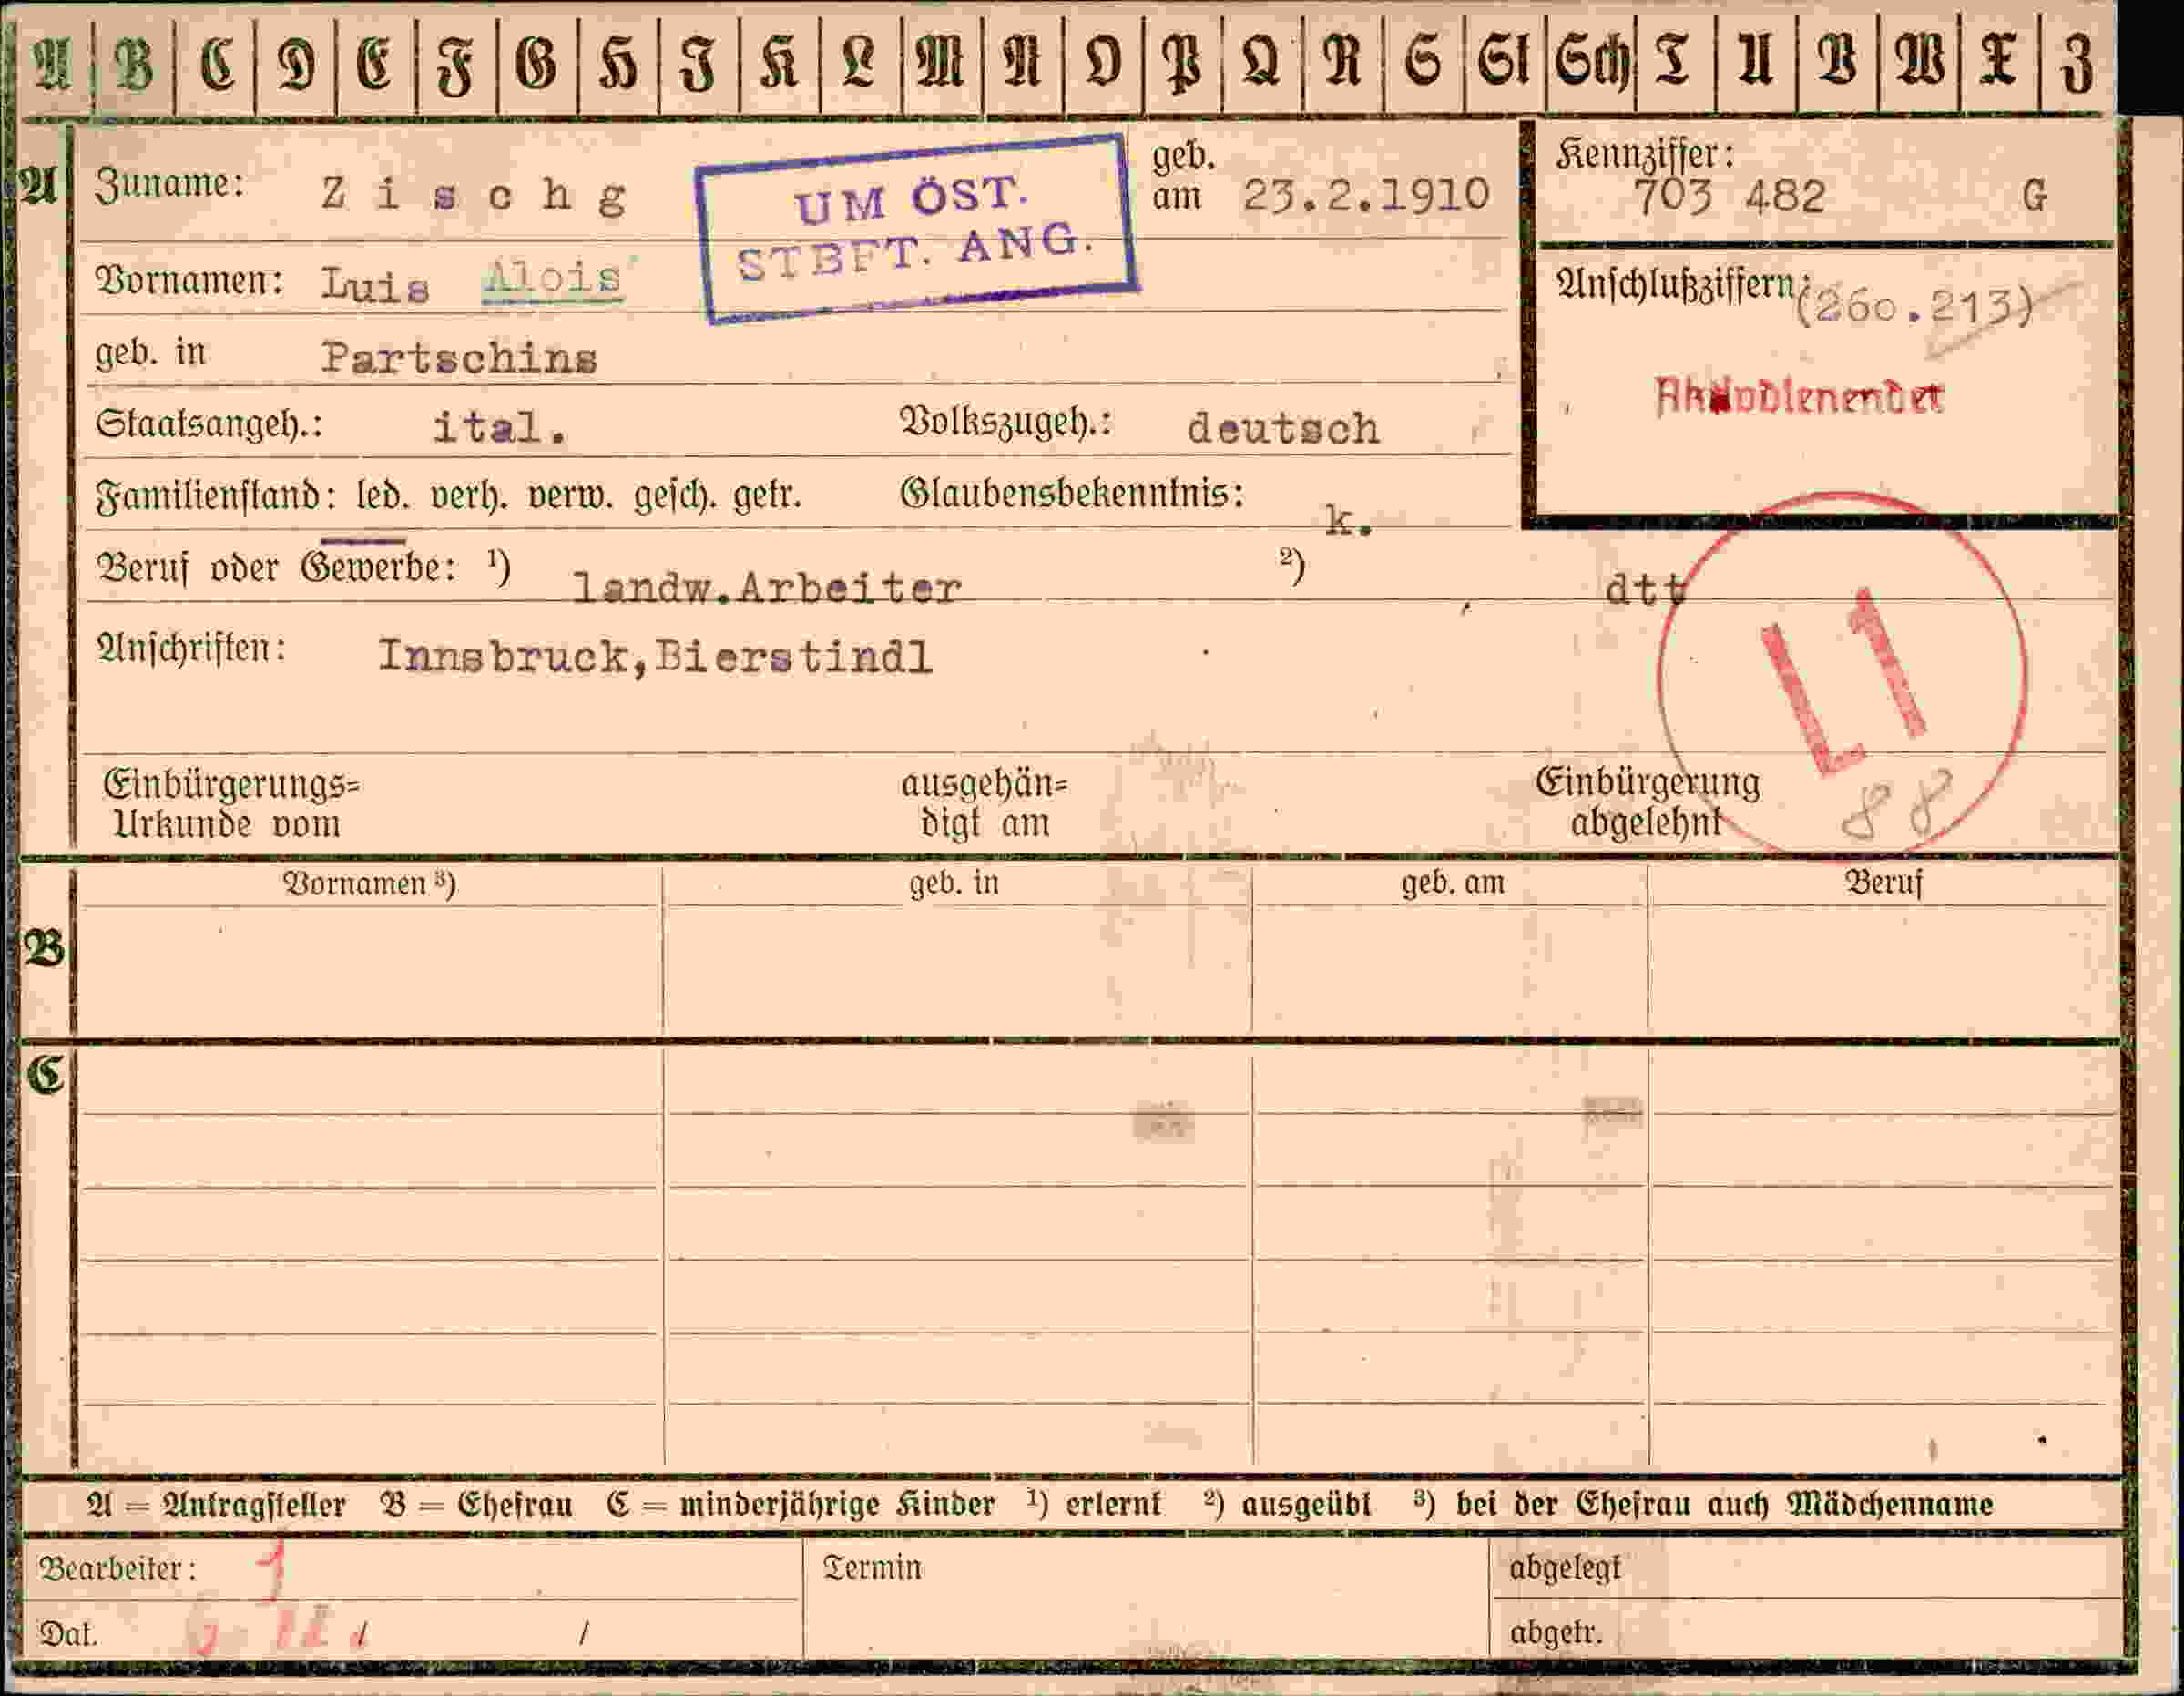 A B C D E F G H I K L M N O P Q R S St Sch T U V W X Z
A Zuname: Zischg
UM ÖST.
STBFT. ANG.
geb.
am 23.2.1910
Kennziffer:
703 482 G
Vornamen: Luis Alois
Anschlußziffern:
(260.213)
geb. in Partschins
Staatsangeh.: ital. Volkszugeh.: deutsch
Familienstand: led. verh. verw. gesch. getr. Glaubensbekenntnis: k.
Beruf oder Gewerbe: ¹) landw.Arbeiter ²) dtt
Anschriften: Innsbruck,Bierstindl
L1
88
Einbürgerungs=
Urkunde vom
ausgehän=
digt am
Einbürgerung
abgelehnt
B Vornamen ³) geb. in geb. am Beruf
C
A = Antragsteller B = Ehefrau C = minderjährige Kinder ¹) erlernt ²) ausgeübt ³) bei der Ehefrau auch Mädchenname
Bearbeiter: 1 Termin abgelegt
Dat. / / abgetr.